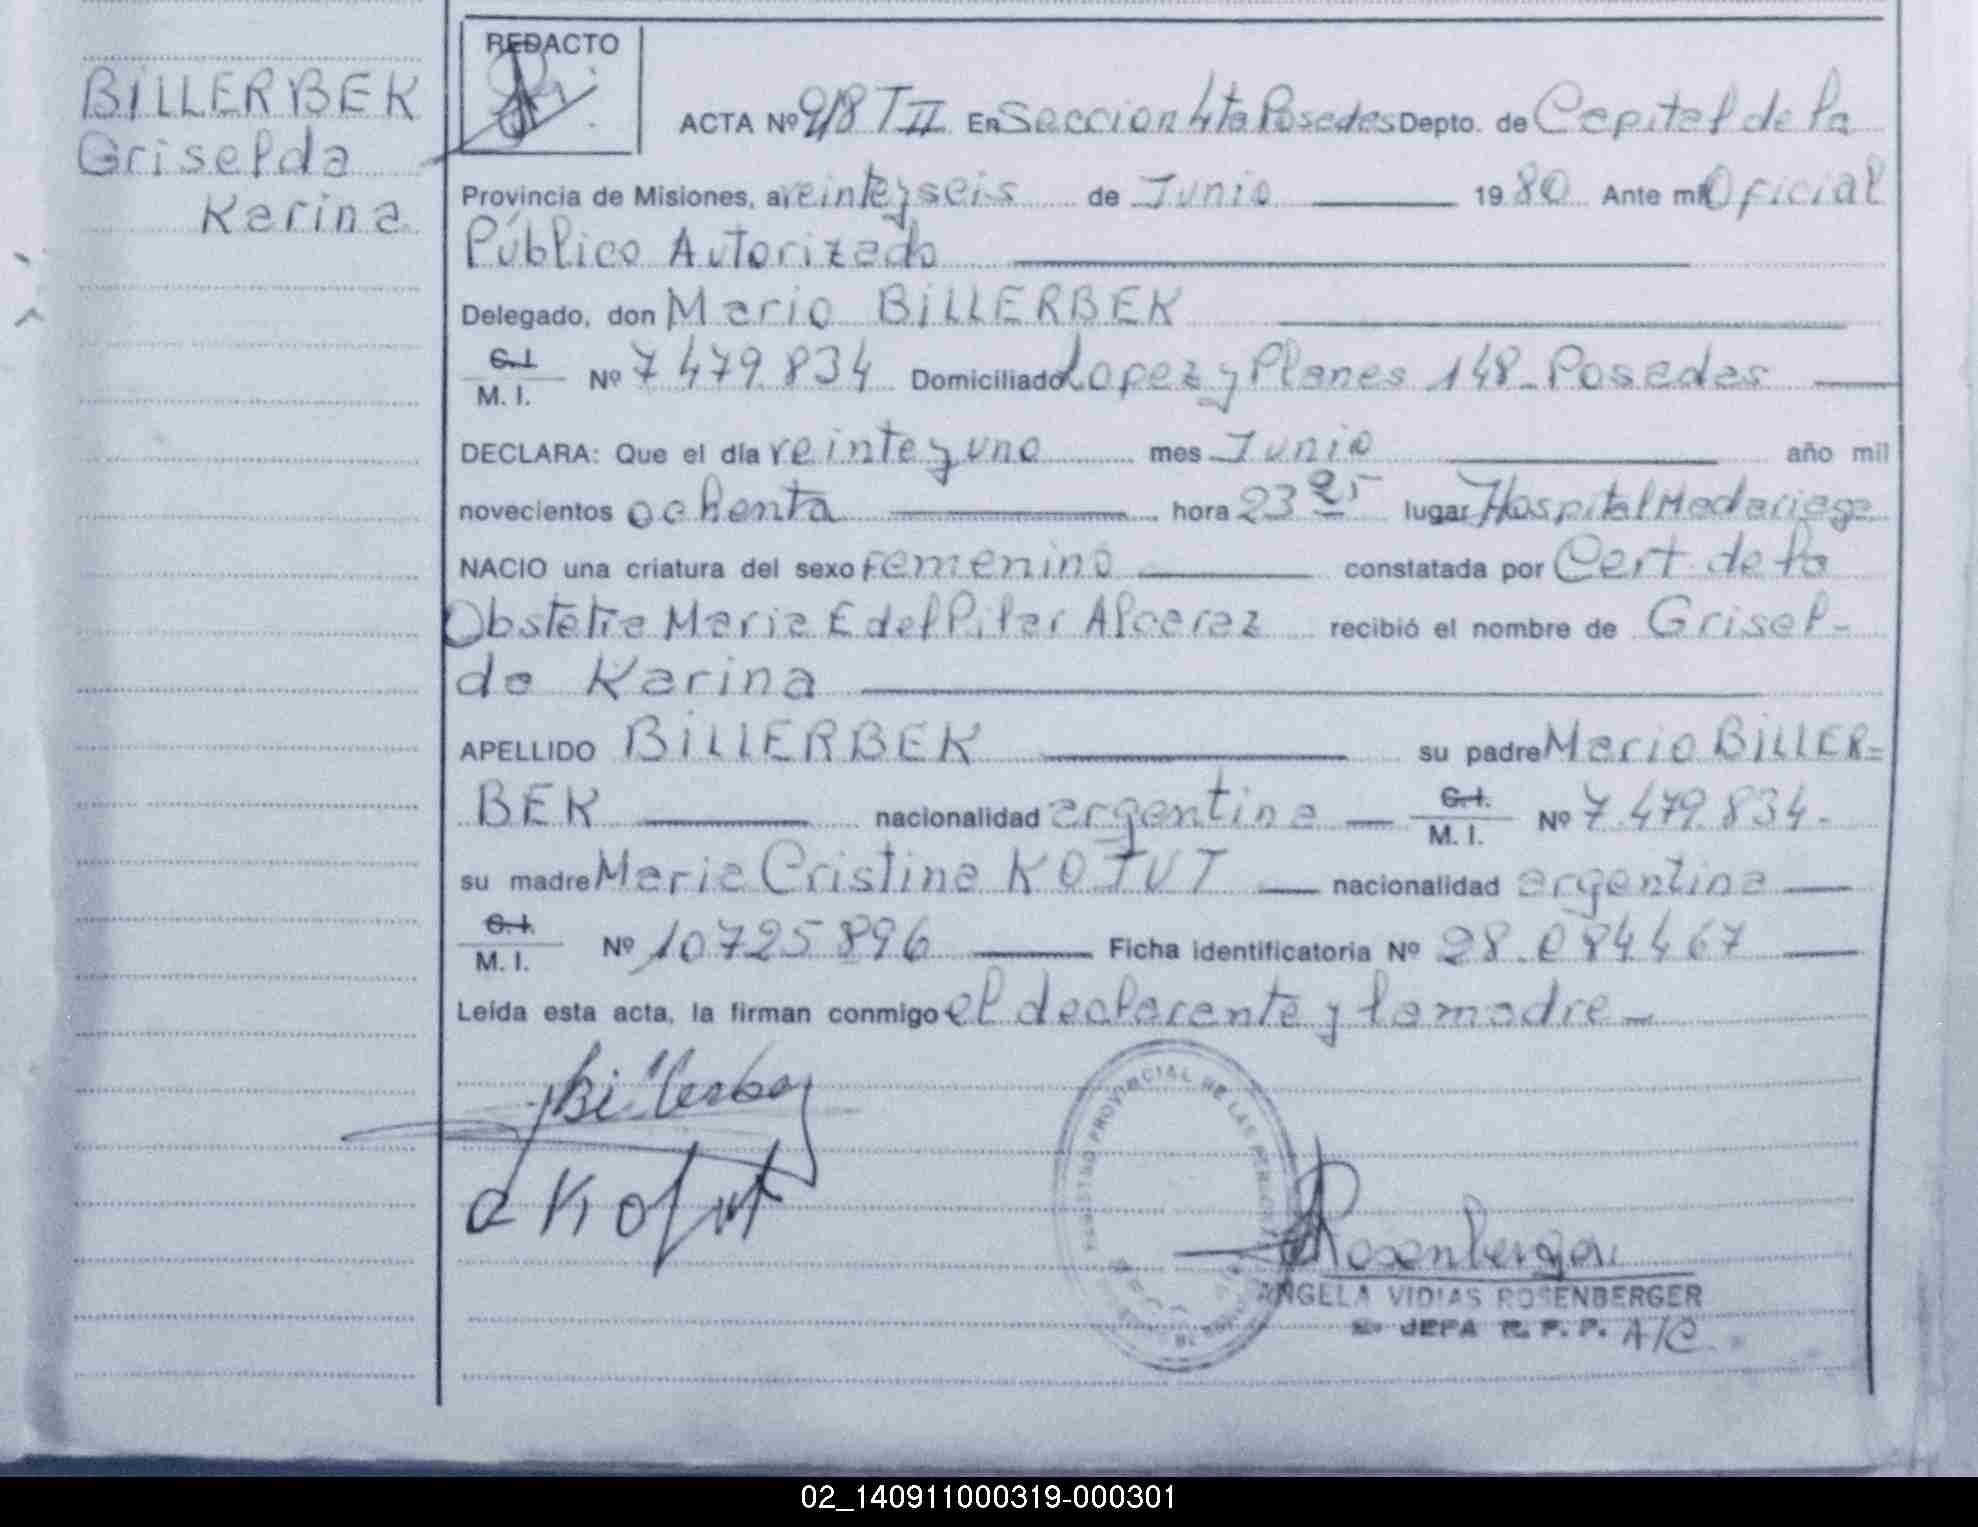 BILLERBEK
Griselda
Karina
REDACTO
ACTA Nº 918 T II En Seccion 4ta Posadas Depto. de Capital de la
Provincia de Misiones, a veinte y seis de Junio 19 80 Ante mi Oficial
Público Autorizado
Delegado, don Mario BILLERBEK
C.I.
M. I. Nº 7 479.834 Domiciliado Lopez y Planes 148 - Posadas
DECLARA: Que el día veinte y uno mes Junio año mil
novecientos ochenta hora 23 25 lugar Hospital Madariaga
NACIO una criatura del sexo Femenino constatada por Cert. de la
Obstetra Maria E del Pilar Alcaraz recibió el nombre de Grisel-
da Karina
APELLIDO BILLERBEK su padre Mario BILLER=
BEK nacionalidad argentina C.I.
M. I. Nº 7.479.834.
su madre Maria Cristina KOJUT nacionalidad argentina
C.I.
M. I. Nº 10725896 Ficha identificatoria Nº 28.084467
Leída esta acta, la firman conmigo el declarante y la madre -
REGISTRO PROVINCIAL DE LAS PERSONAS
Rosenberger
ANGELA VIDIAS ROSENBERGER
JEFA R. P. P. A/C.
02_140911000319-000301